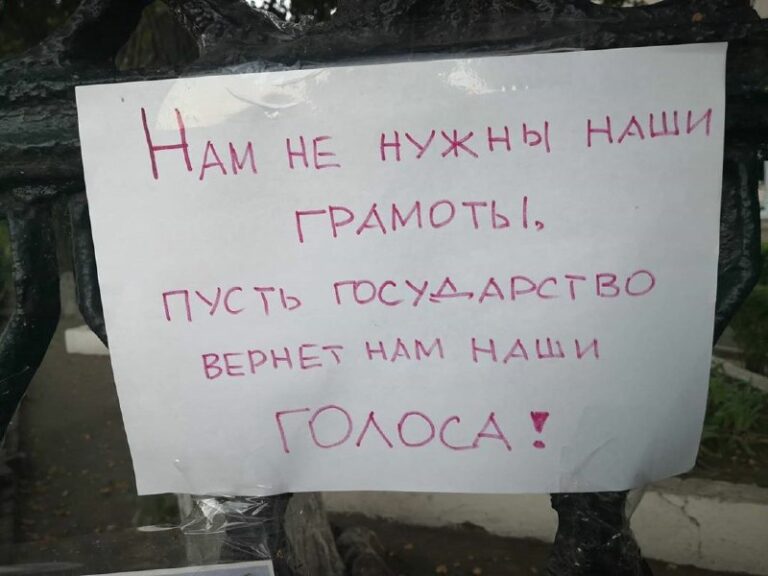 НАМ НЕ НУЖНЫ НАШИ
ГРАМОТЫ,
ПУСТЬ ГОСУДАРСТВО
ВЕРНЕТ НАМ НАШИ
ГОЛОСА!